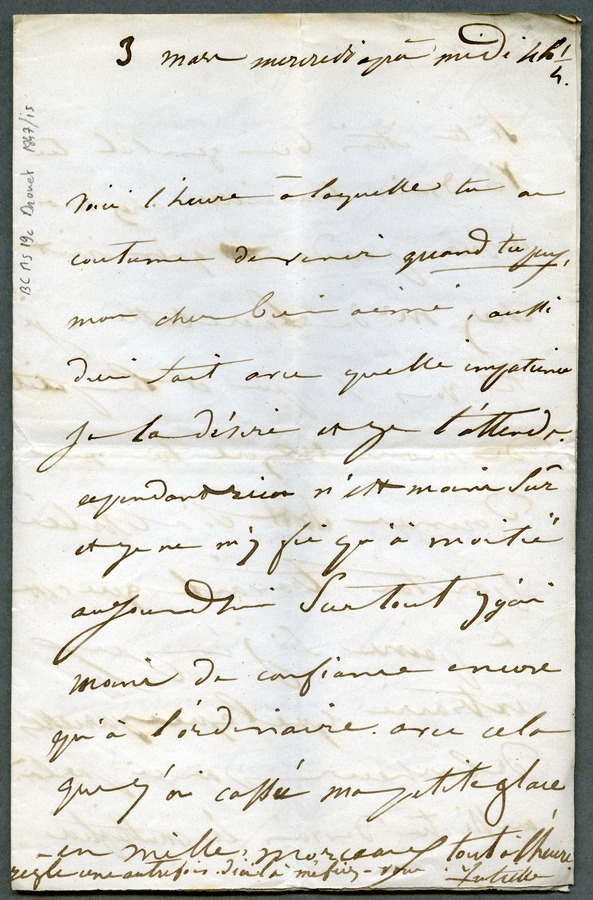 3 mars mercredi après midi 4h 1/4.
Voici l'heure à laquelle tu as
coutume de venir quand tu peux,
mon cher bien aimé, aussi
Dieu sait avec quelle impatience
je la désire et je l'attends.
cependant rien n'est moins sûr
et je ne m'y fie qu'à moitié
aujourd'hui surtout j'y ai
moins de confiance encore
qu'à l'ordinaire. avec cela
que j'ai cassé ma petite glace
en mille morceaux tout à l'heure
règle une autre fois. d'ici là méfiez-vous
Juliette
BC MS 19c Drouet 1847/15